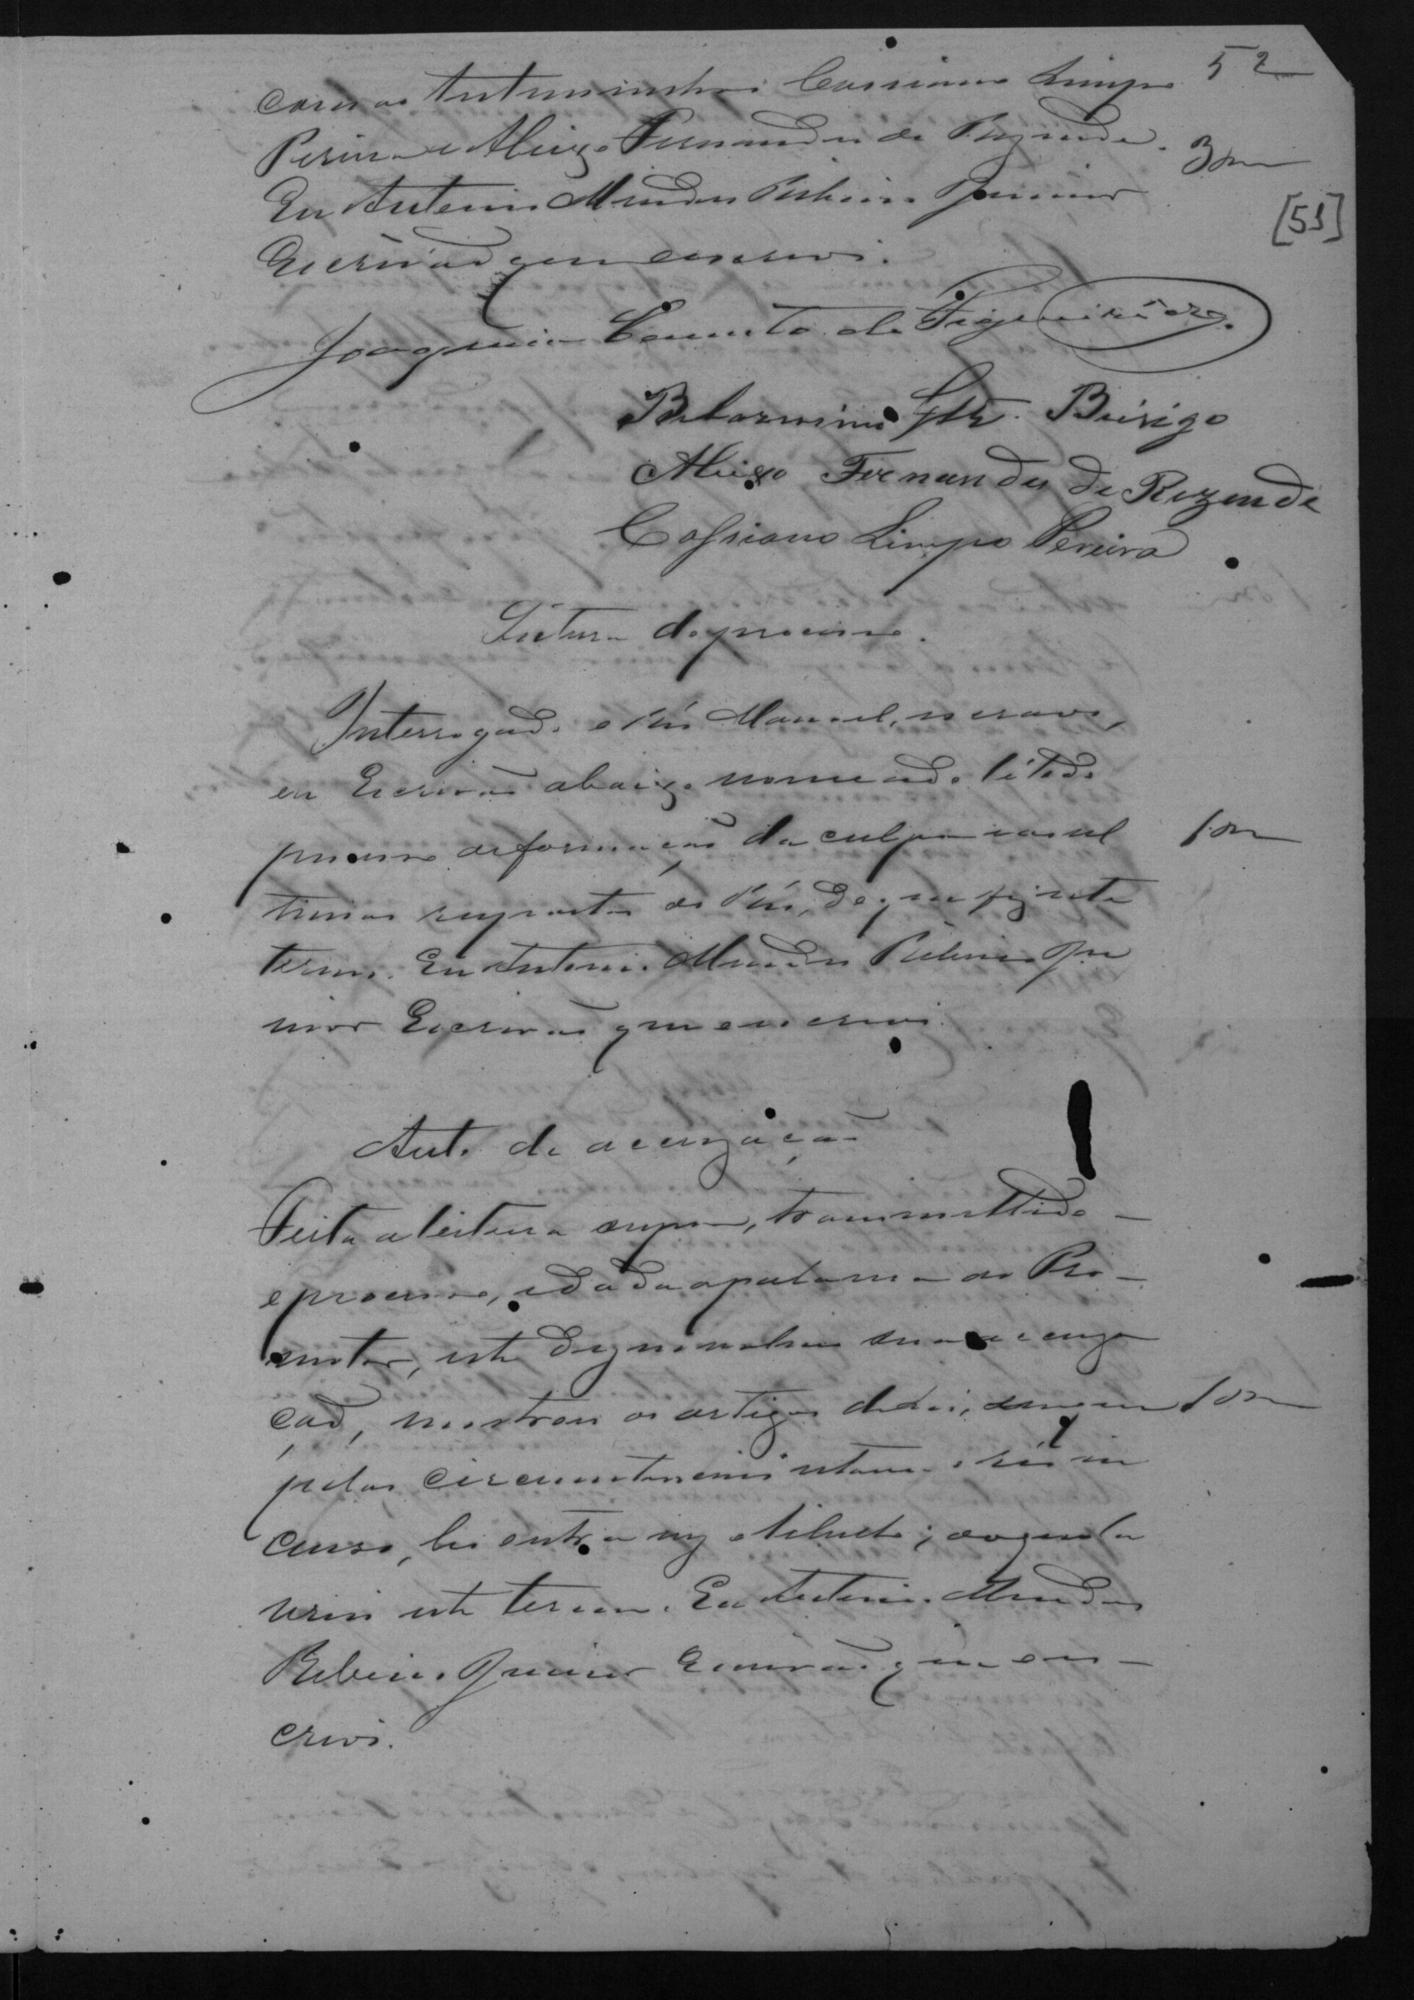 52
com as testemunhas Cassiano Limpo
Pereira e Aleixo Fernandes de Rezende.
Eu Antonio Mendes Ribeiro Junior
Escrivão que escrevi.
[51]
Joaquim Cannuto de Figueirêdo.
Belarmino Glz. Búrigo
Aleixo Fernandes de Rezende
Cassiano Limpo Pereira
Leitura do processo.
Interrogado o réu Manoel, escravo,
eu Escrivão abaixo nomeado li todo
processo de formação da culpa e as ul
timas respostas do Réu, do que fiz este
termo. Eu Antonio Mendes Ribeiro Ju
nior Escrivão que escrevi.
Auto de accuzação
Feita a leitura supra, transmittido
o processo, e dada a palavra ao Pro-
motor, este desenvolveu sua accuza
ção, mostrou os artigos da lei, em que
pelas circumstancias estava o réu in
curso, leu outra vez o libello; do que la
vrei este termo. Eu Antonio Mendes
Ribeiro Junior Escrivão que es-
crevi.